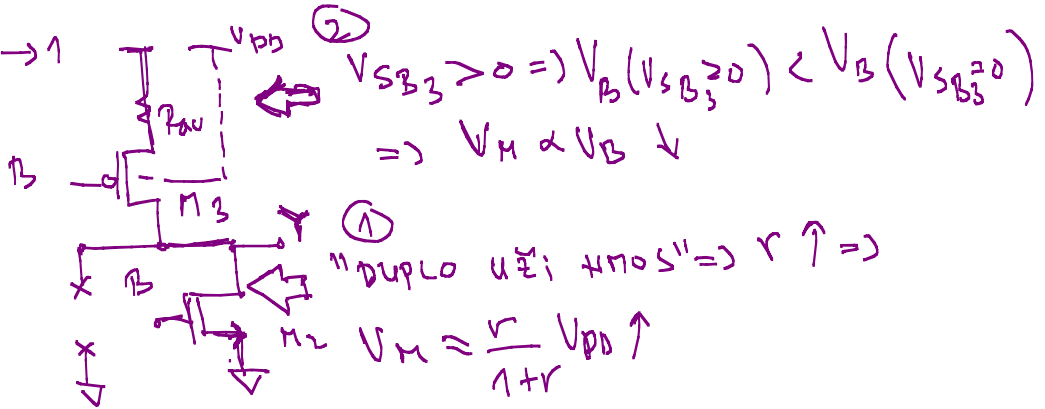 →1
V_DD
②
V_SB3 > 0 => V_B(V_SB3 ≥ 0) < V_B(V_SB3 = 0)
=> V_M ∝ V_B ↓
B
M3
Y
①
"DUPLO UŽi NMOS" => r ↑ =>
B
M2
V_M ≈ r/(1+r) V_DD ↑